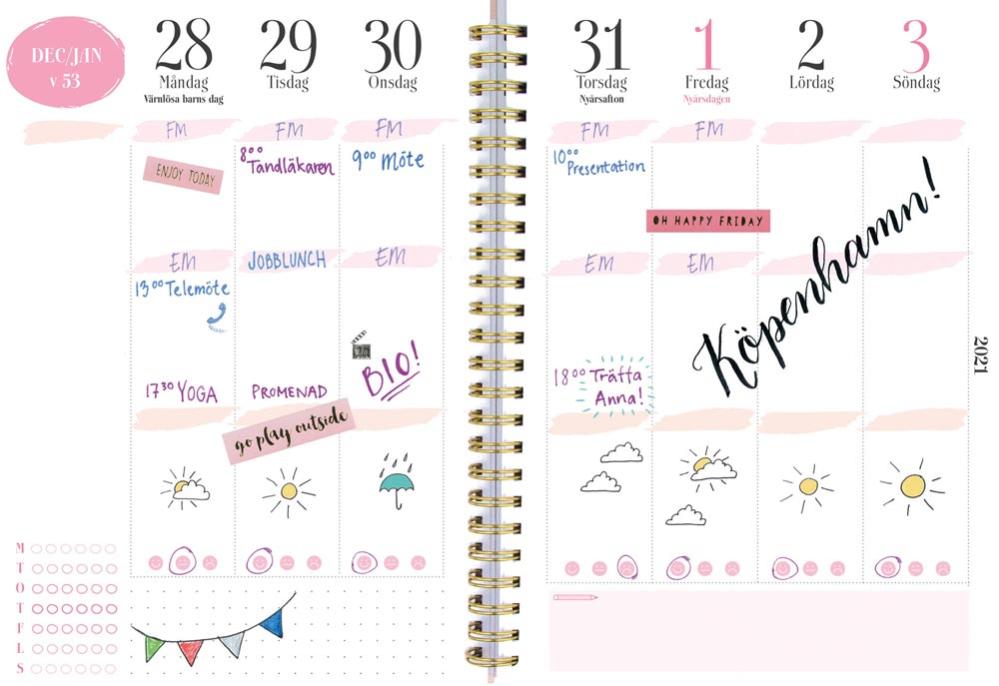 DEC/JAN
v 53
28
Måndag
Värnlösa barns dag
29
Tisdag
30
Onsdag
31
Torsdag
Nyårsafton
1
Fredag
Nyårsdagen
2
Lördag
3
Söndag
FM
FM
FM
FM
FM
ENJOY TODAY
8⁰⁰ Tandläkaren
9⁰⁰ Möte
10⁰⁰ Presentation
OH HAPPY FRIDAY
EM
JOBBLUNCH
EM
EM
EM
13⁰⁰ Telemöte
Köpenhamn!
2021
BIO!
17³⁰ YOGA
PROMENAD
18⁰⁰ Träffa
Anna!
go play outside
M
T
O
T
F
L
S